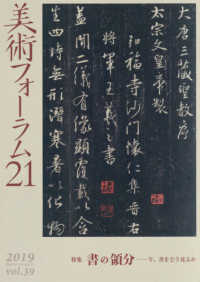 美術フォーラム21
大唐三藏聖教序
太宗文皇帝製
弘福寺沙門懷仁集晉右
將軍王羲之書
蓋聞二儀有像顯覆載以含
生四時無形潛寒暑以化物
2019
vol.39
特集 書の領分——今、書をどう見るか